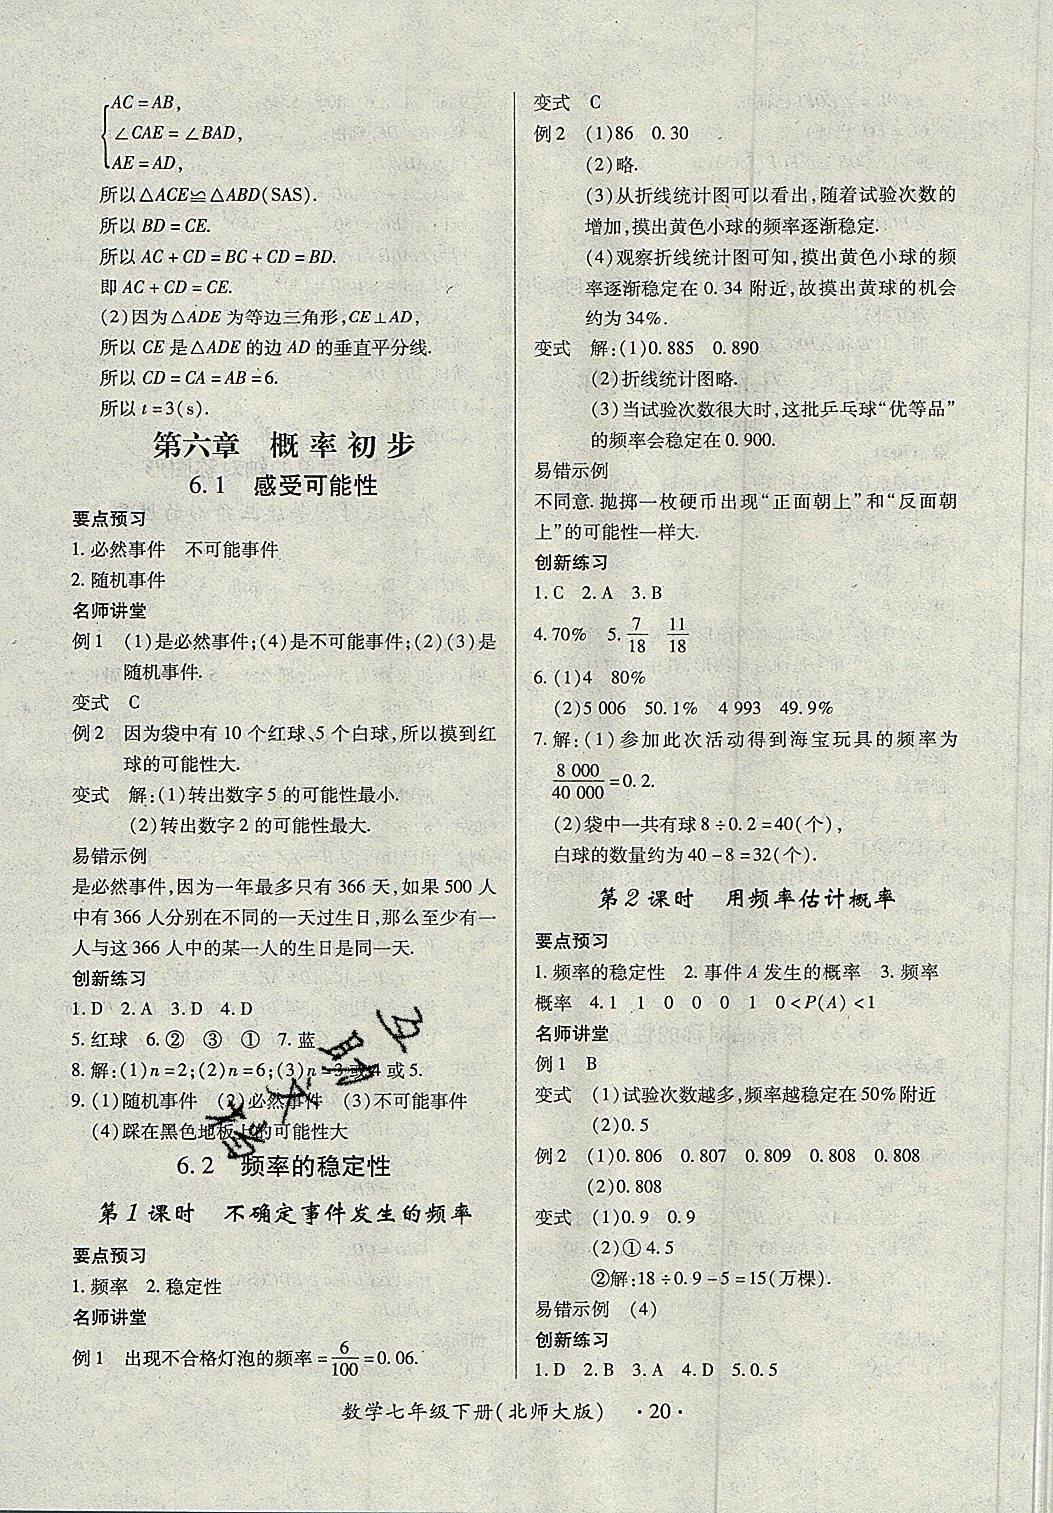 AC=AB,
∠CAE=∠BAD,
AE=AD,
所以△ACE≌△ABD(SAS).
所以 BD=CE.
所以 AC+CD=BC+CD=BD.
即 AC+CD=CE.
(2)因为△ADE 为等边三角形,CE⊥AD,
所以 CE 是△ADE 的边 AD 的垂直平分线.
所以 CD=CA=AB=6.
所以 t=3(s).
第六章 概率初步
6.1 感受可能性
要点预习
1.必然事件 不可能事件
2.随机事件
名师讲堂
例1 (1)是必然事件;(4)是不可能事件;(2)(3)是
随机事件.
变式 C
例2 因为袋中有 10 个红球、5 个白球,所以摸到红
球的可能性大.
变式 解:(1)转出数字 5 的可能性最小.
(2)转出数字 2 的可能性最大.
易错示例
是必然事件,因为一年最多只有 366 天,如果 500 人
中有 366 人分别在不同的一天过生日,那么至少有一
人与这 366 人中的某一人的生日是同一天.
创新练习
1.D 2.A 3.D 4.D
5.红球 6.② ③ ① 7.蓝
8.解:(1)n=2;(2)n=6;(3)n=3 或 4 或 5.
9.(1)随机事件 (2)必然事件 (3)不可能事件
(4)踩在黑色地板上的可能性大
6.2 频率的稳定性
第1课时 不确定事件发生的频率
要点预习
1.频率 2.稳定性
名师讲堂
例1 出现不合格灯泡的频率=6/100=0.06.
变式 C
例2 (1)86 0.30
(2)略.
(3)从折线统计图可以看出,随着试验次数的
增加,摸出黄色小球的频率逐渐稳定.
(4)观察折线统计图可知,摸出黄色小球的频
率逐渐稳定在 0.34 附近,故摸出黄球的机会
约为 34%.
变式 解:(1)0.885 0.890
(2)折线统计图略.
(3)当试验次数很大时,这批乒乓球“优等品”
的频率会稳定在 0.900.
易错示例
不同意.抛掷一枚硬币出现“正面朝上”和“反面朝
上”的可能性一样大.
创新练习
1.C 2.A 3.B
4.70% 5.7/18 11/18
6.(1)4 80%
(2)5 006 50.1% 4 993 49.9%
7.解:(1)参加此次活动得到海宝玩具的频率为
8 000/40 000=0.2.
(2)袋中一共有球 8÷0.2=40(个),
白球的数量约为 40-8=32(个).
第2课时 用频率估计概率
要点预习
1.频率的稳定性 2.事件 A 发生的概率 3.频率
概率 4.1 1 0 0 0 1 0<P(A)<1
名师讲堂
例1 B
变式 (1)试验次数越多,频率越稳定在 50%附近
(2)0.5
例2 (1)0.806 0.807 0.809 0.808 0.808
(2)0.808
变式 (1)0.9 0.9
(2)①4.5
②解:18÷0.9-5=15(万棵).
易错示例 (4)
创新练习
1.D 2.B 3.A 4.D 5.0.5
数学七年级下册(北师大版) ·20·